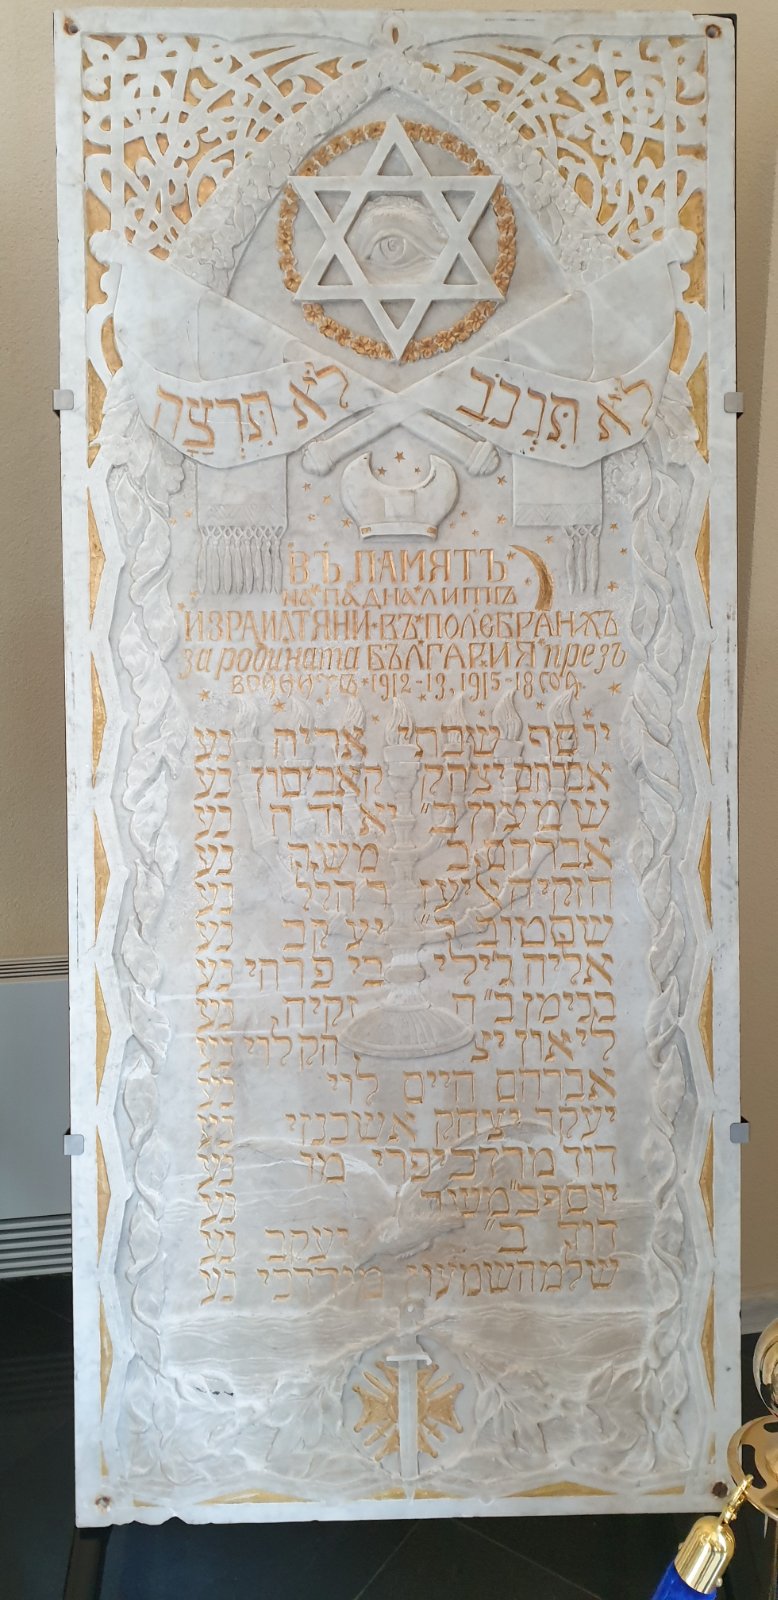 לֹא תִּרְצָח
לֹא תִּגְנֹב
ВЪ ПАМЯТЪ
НА ПАДНАЛИТѢ
ИЗРАИЛТЯНИ ВЪ ПОЛЕБРАНѪ
за родината БЪЛГАРИЯ презъ
1912-13, 1915-18 год.
יוסף שבתי אריה נע
אברהם יצחק קאביסון נע
שמעון ב״ יאודה נע
אברהם ב משה נע
חזקיה נע
שמטוב יעקב נע
אליה פרחי נע
בנימן ב״ח זקיה נע
ליאון יצ חק לוי נע
אברהם חיים לוי נע
יעקב יצחק אשכנזי נע
דוד מרדכי נע
יוסף ב״ נע
דוד ב״ יעקב נע
שלמה שמעון מורדכי נע